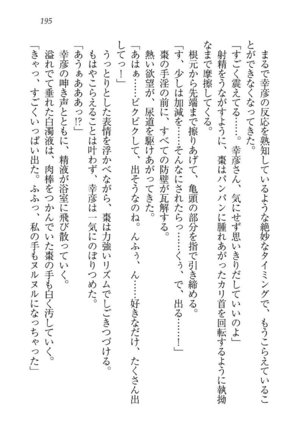 195
まるで幸彦の反応を熟知しているような絶妙なタイミングで、もうこらえているこ
とができなくなってきた。
「すごく震えてる……。幸彦さん、気にせず思いきりだしていいのよ」
射精をうながすように、棗はパンパンに腫れあがったカリ首を回転するように執拗
なまで摩擦してくる。
根元から先端まで擦りあげて、亀頭の部分を指で引き締める。
「す、少しは加減を……そんなにされたらっ……くぅ、で、出る……！」
棗の手淫の前に、すべての防壁が瓦解する。
熱い欲望が、尿道を駆けあがってきた。
「あはぁ……ビクビクして、出そうなのね。んふぅ、ん……好きなだけ、たくさん出
してっ！」
うっとりとした表情を浮かべながら、棗は力強いリズムでしごきつづける。
もはやこらえることは叶わず、幸彦は一気にのぼりつめた。
「あうぁああぁっ!?」
幸彦の呻き声とともに、精液が浴室に飛び散っていく。
溢れでて垂れた白濁液は、肉棒をつかんでいた棗の手も白く汚していく。
「きゃっ、すごくいっぱい出た。ふふっ、私の手もヌルヌルになっちゃった」